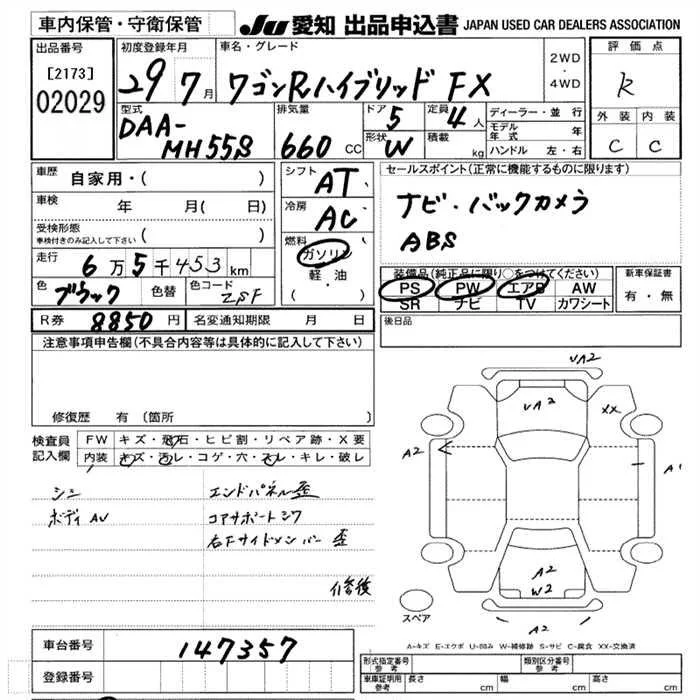 車内保管・守衛保管
JU 愛知 出品申込書 JAPAN USED CAR DEALERS ASSOCIATION
出品番号
[2173]
02029
初度登録年月
29 7月
車名・グレード
ワゴンRハイブリッド FX
2WD
・
4WD
評価点
R
外装 内装
C C
型式
DAA-
MH55S
排気量
660 CC
ドア 5
形状 W
定員 4人
積載 kg
ディーラー・並行
モデル年式 年
ハンドル 左・右
車歴 自家用・( )
車検 年 月( 日)
受検形態
車検付きのみ記入して下さい ( )
走行 6万5千453km
色 ブラック 色替 色コード ZSF
シフト AT
冷房 AC
燃料
ガソリン
軽・油
( )
セールスポイント(正常に機能するものに限ります)
ナビ・バックカメラ
ABS
装備品(純正品に限り○をつけてください)
PS PW エアB AW
SR ナビ TV カワシート
新車保証書
有・無
R券 8850円 名変通知期限 月 日
後日品
注意事項申告欄(不具合内容等は具体的に記入して下さい)
修復歴 有 (箇所 )
検査員
記入欄
FW キズ・飛石・ヒビ割・リペア跡・X要
内装 キズ・汚レ・コゲ・穴・スレ・キレ・破レ
エンドパネル歪
ボディ AU コアサポートシワ
右下サイドメンバー 歪
修復
VA2
VA2
XX
A2
A1
A2
W2
A2
スペア
A-キズ E-エクボ U-凹み W-補修跡 S-サビ C-腐食 XX-交換済
車台番号 147357
登録番号
形式指定番号
参考
類別区分番号
参考
車庫証明用
参考
長さ cm 幅 cm 高さ cm